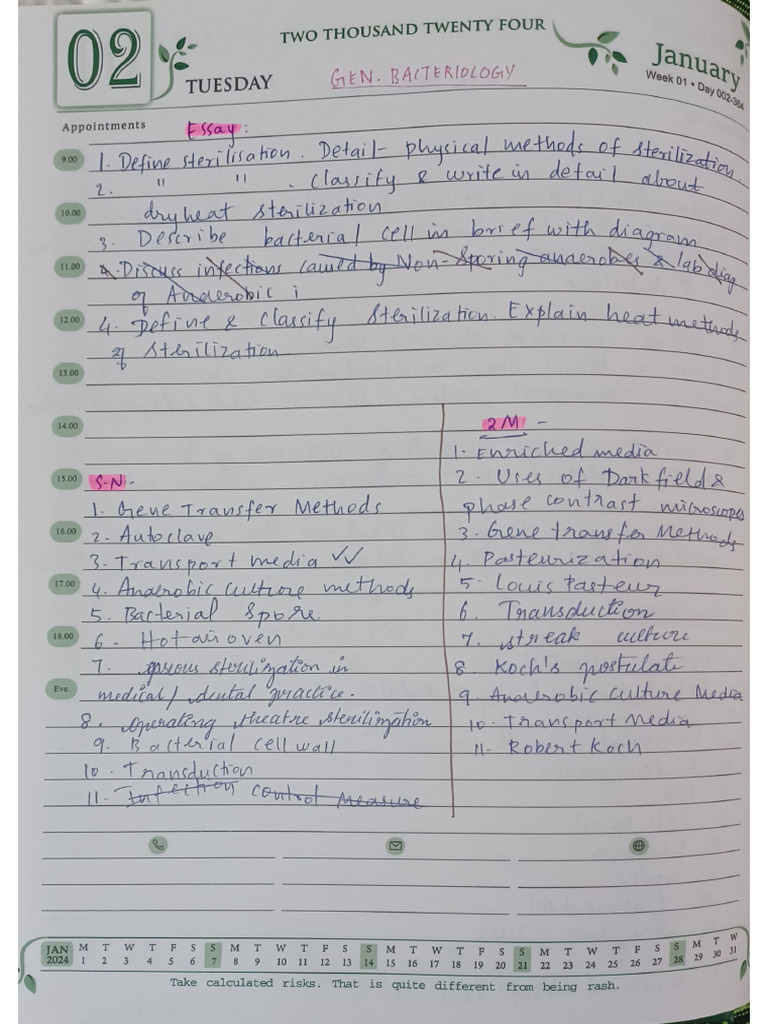 02
TUESDAY
TWO THOUSAND TWENTY FOUR
GEN. BACTERIOLOGY
January
Week 01 • Day 002-364
Appointments
Essay:
9.00
1. Define sterilisation. Detail - physical methods of sterilization
2. " " . Classify & write in detail about
10.00
dry heat sterilization
3. Describe bacterial cell in brief with diagram
11.00
4. Discuss infections caused by Non-Sporing anaerobes & lab diag
of Anaerobic i
12.00
4. Define & Classify Sterilization. Explain heat methods
of Sterilization
13.00
14.00
15.00
S.N -
1. Gene Transfer Methods
16.00
2. Autoclave
3. Transport media ✓✓
17.00
4. Anaerobic culture methods
5. Bacterial Spore
18.00
6 - Hot air oven
7. sterilization in
Eve.
medical / dental practice.
8. Operating theatre sterilization
9. Bacterial cell wall
10. Transduction
11. Infection control Measure
2M -
1. Enriched media
2. Uses of Dark field &
phase contrast microscopes
3. Gene transfer Methods
4. Pasteurization
5. Louis Pasteur
6. Transduction
7. streak culture
8. Koch's postulate
9. Anaerobic Culture Media
10. Transport Media
11. Robert Koch
JAN M T W T F S S M T W T F S S M T W T F S S M T W T F S S M T W
2024 1 2 3 4 5 6 7 8 9 10 11 12 13 14 15 16 17 18 19 20 21 22 23 24 25 26 27 28 29 30 31
Take calculated risks. That is quite different from being rash.